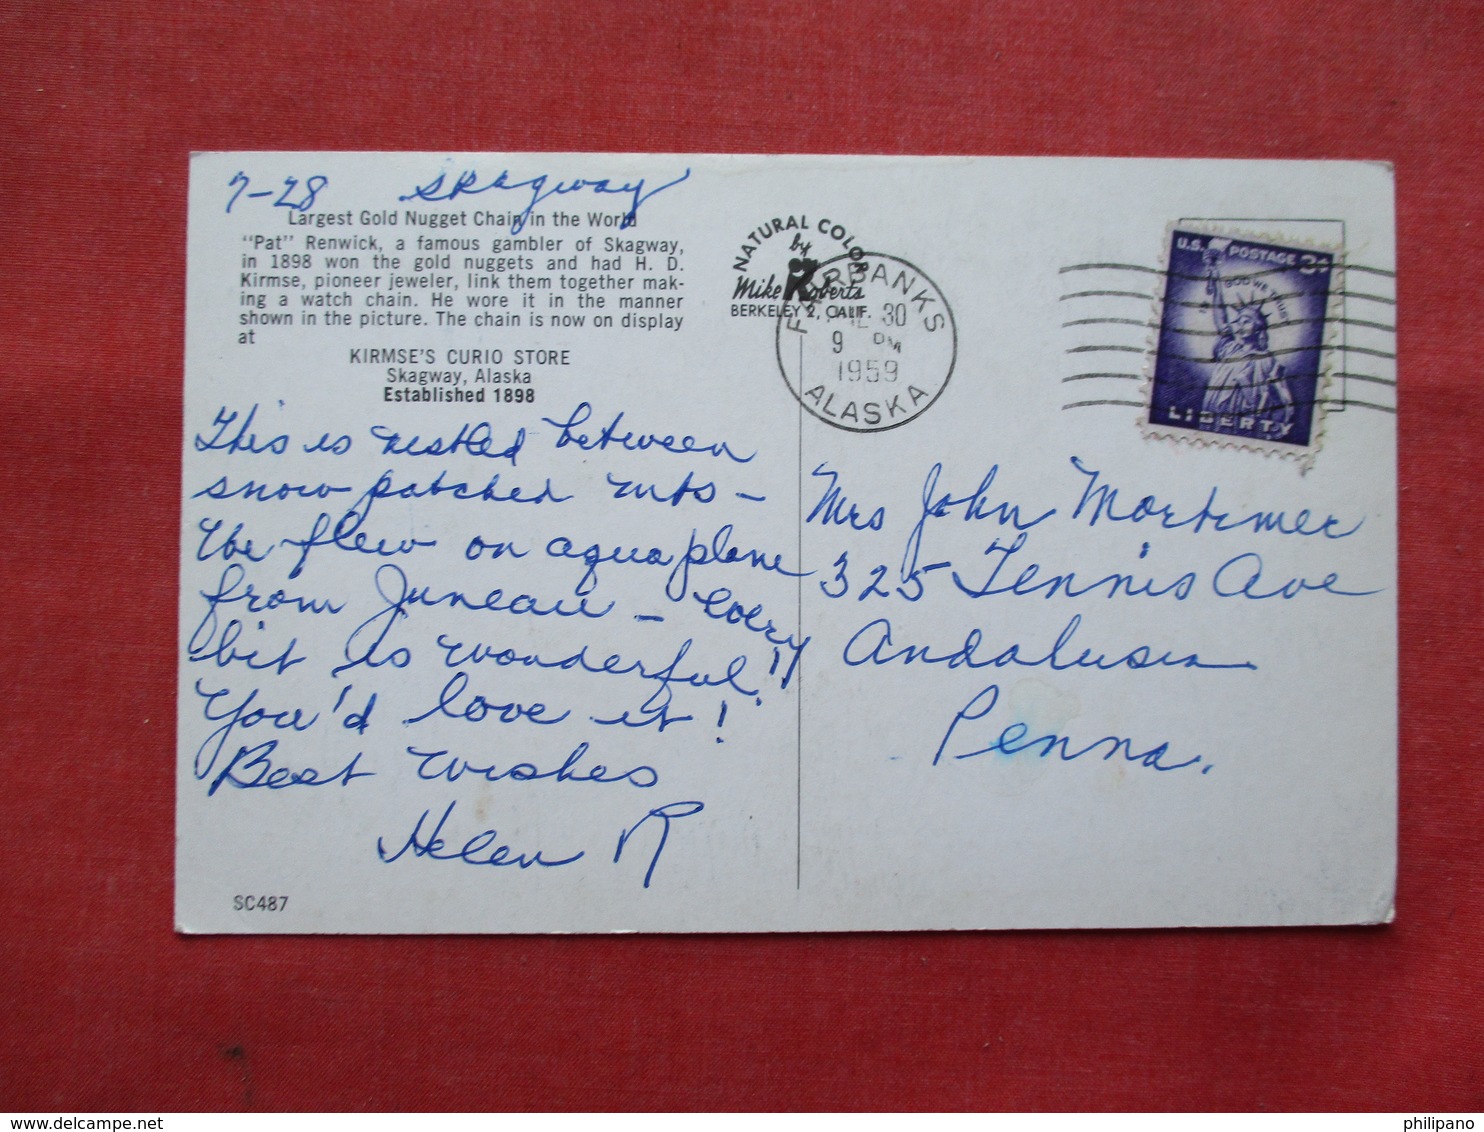 7-28 Skagway
Largest Gold Nugget Chain in the World
"Pat" Renwick, a famous gambler of Skagway,
in 1898 won the gold nuggets and had H. D.
Kirmse, pioneer jeweler, link them together mak-
ing a watch chain. He wore it in the manner
shown in the picture. The chain is now on display
at
KIRMSE'S CURIO STORE
Skagway, Alaska
Established 1898
This is nestled between
snow patched mts -
We flew on aqua plane
from Juneau - every
bit is wonderful!!
You'd love it!
Best wishes
Helen R
SC487
NATURAL COLOR
by
Mike Roberts
BERKELEY 2, CALIF.
FAIRBANKS
30
9 PM
1959
ALASKA
U.S. POSTAGE 3¢
IN GOD WE TRUST
LIBERTY
Mrs John Mortimer
325 Tennis Ave
Andalusia
Penna.
www.delcampe.net
philipano